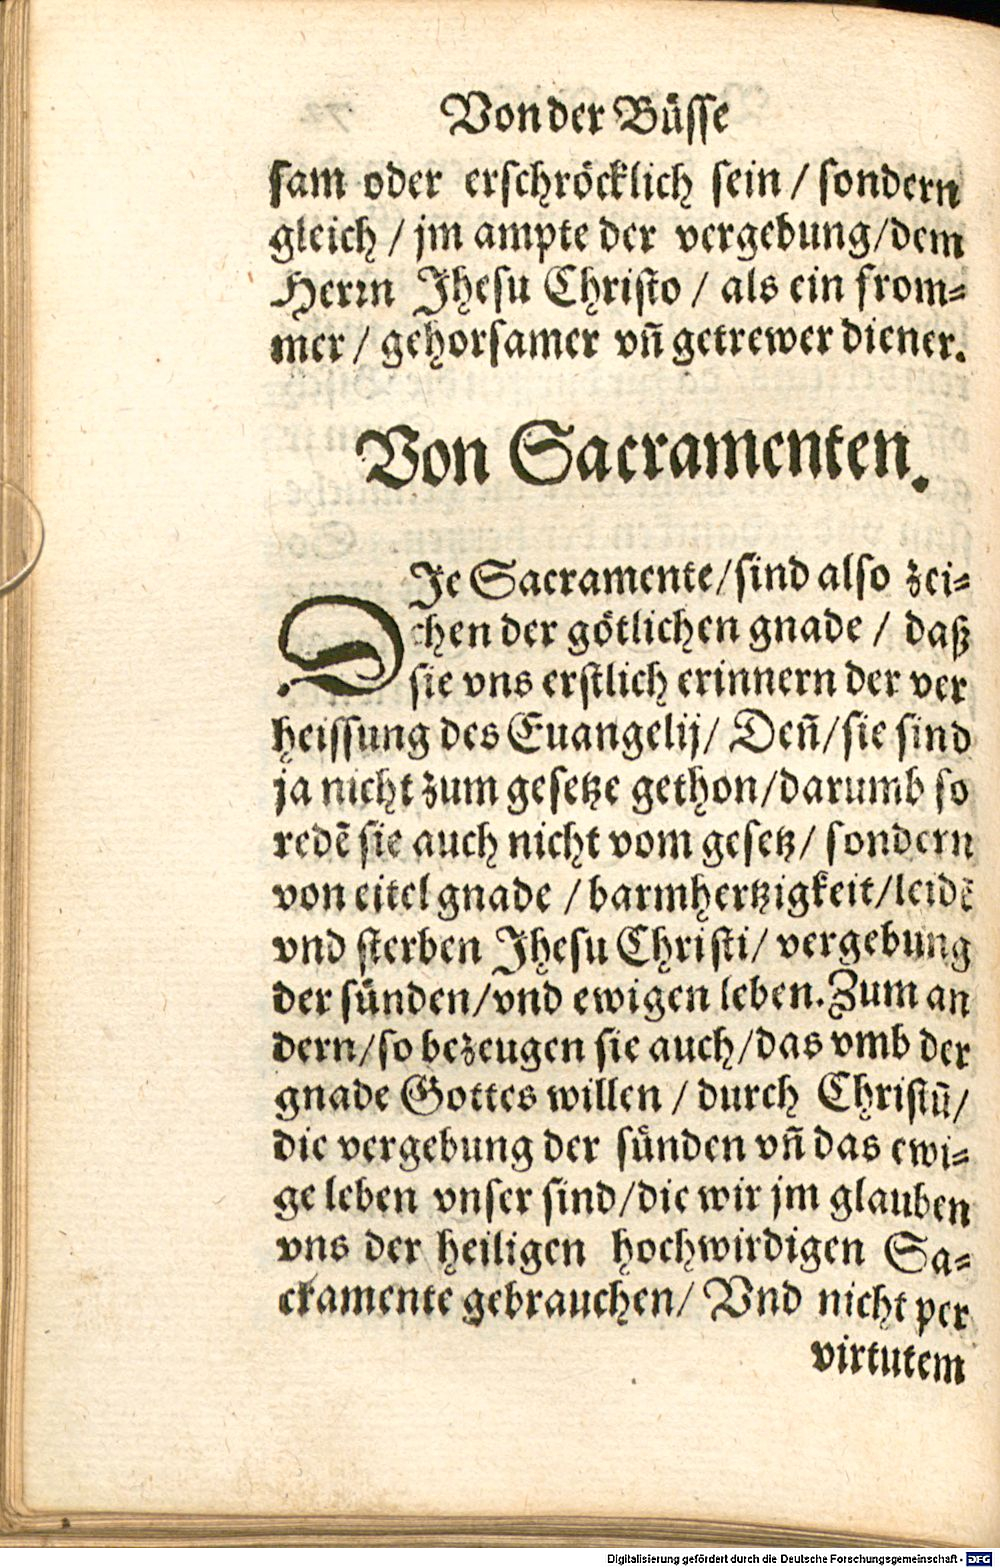 Von der Büsse
sam oder erschröcklich sein / sondern
gleich / jm ampte der vergebung/dem
Herrn Jhesu Christo / als ein from-
mer / gehorsamer vñ getrewer diener.
Von Sacramenten.
DJe Sacramente/sind also zei-
chen der götlichen gnade / daß
sie vns erstlich erinnern der ver
heissung des Euangelij/ Deñ/sie sind
ja nicht zum gesetze gethon/darumb so
redẽ sie auch nicht vom gesetz/ sondern
von eitel gnade / barmhertzigkeit/leidẽ
vnd sterben Jhesu Christi/ vergebung
der sünden/vnd ewigen leben. Zum an
dern/so bezeugen sie auch/das vmb der
gnade Gottes willen / durch Christũ/
die vergebung der sünden vñ das ewi-
ge leben vnser sind/die wir jm glauben
vns der heiligen hochwirdigen Sa-
cramente gebrauchen/ Vnd nicht per
virtutem
Digitalisierung gefördert durch die Deutsche Forschungsgemeinschaft - DFG